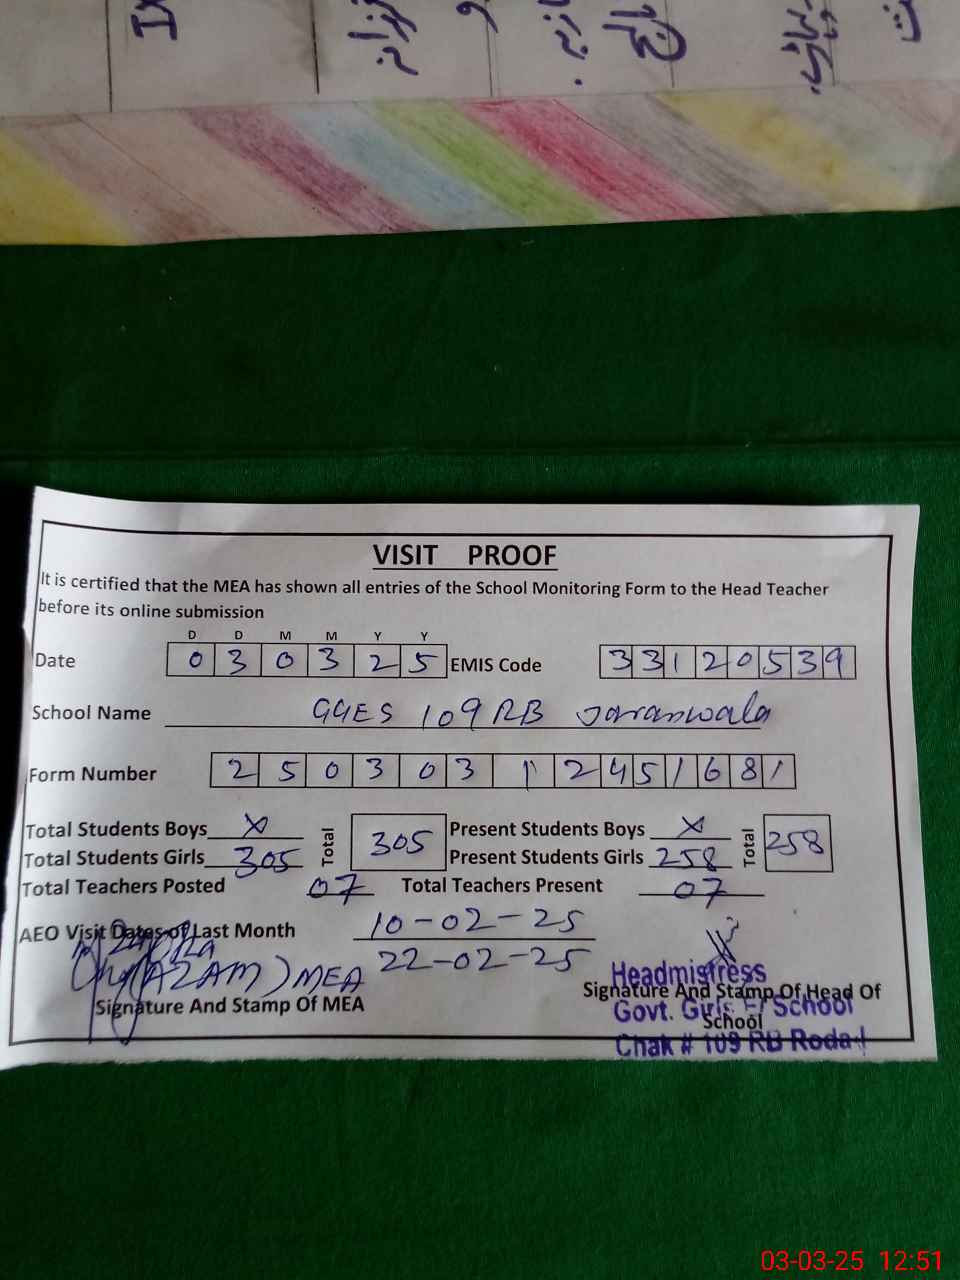 IX
VISIT PROOF
It is certified that the MEA has shown all entries of the School Monitoring Form to the Head Teacher
before its online submission
D D M M Y Y
Date 0 3 0 3 2 5 EMIS Code 3 3 1 2 0 5 3 9
School Name GGES 109 RB Jaranwala
Form Number 2 5 0 3 0 3 1 2 4 5 1 6 8 1
Total Students Boys X Total 305 Present Students Boys X Total 258
Total Students Girls 305 Present Students Girls 258
Total Teachers Posted 07 Total Teachers Present 07
AEO Visit Dates of Last Month 10-02-25
22-02-25
(AZAM) MEA
Signature And Stamp Of MEA
Headmistress
Signature And Stamp Of Head Of
School
Govt. Girls E/ School
Chak # 109 RB Roda
03-03-25 12:51